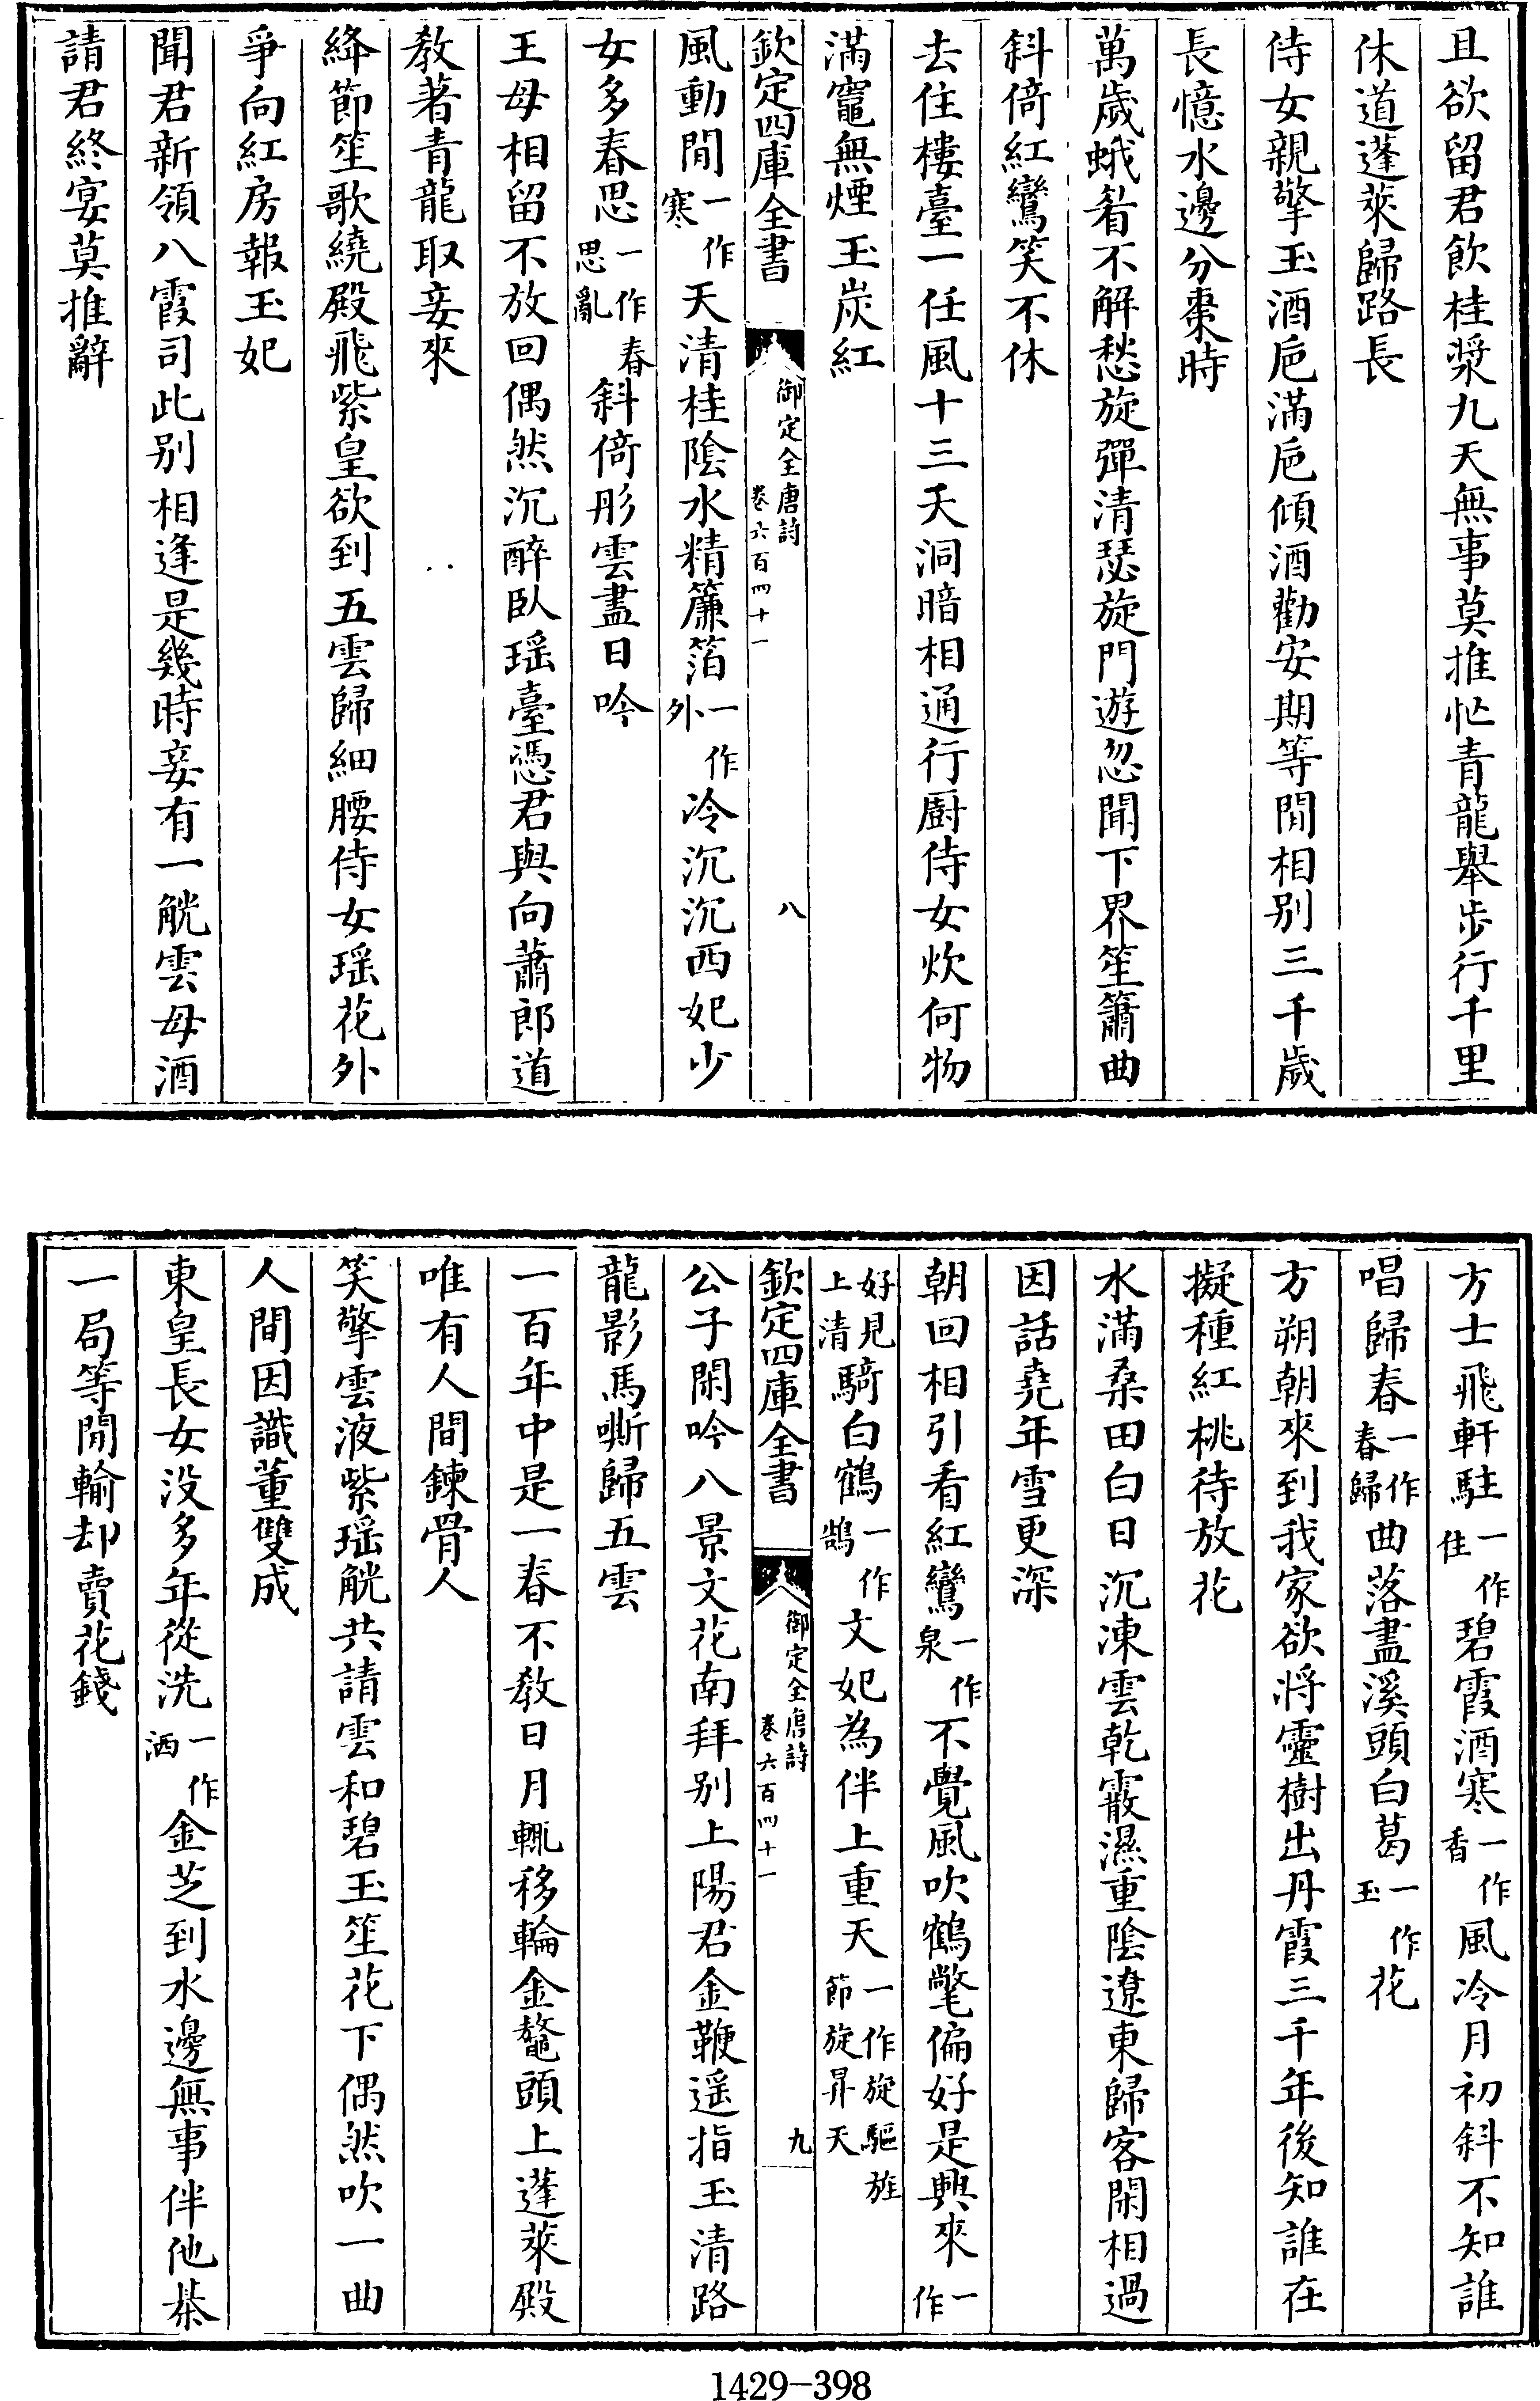 且欲留君飲桂漿九天無事莫推忙青龍舉步行千里
休道蓬萊歸路長
侍女親擎玉酒巵滿巵傾酒勸安期等閒相別三千歲
長憶水邊分棗時
萬歲蛾眉不解愁旋彈清瑟旋門遊忽聞下界笙簫曲
斜倚紅鸞笑不休
去住樓臺一任風十三天洞暗相通行廚侍女炊何物
滿竈無煙玉炭紅
欽定四庫全書 御定全唐詩 卷六百四十一 八
風動閒一作寒天清桂陰水精簾箔一作外冷沉沉西妃少
女多春思一作春思亂斜倚彤雲盡日吟
王母相留不放回偶然沉醉臥瑶臺憑君與向蕭郎道
教著青龍取妾來
絳節笙歌繞殿飛紫皇欲到五雲歸細腰侍女瑶花外
爭向紅房報玉妃
聞君新領八霞司此別相逢是幾時妾有一觥雲母酒
請君終宴莫推辭
方士飛軒駐一作住碧霞酒寒一作香風冷月初斜不知誰
唱歸春一作春歸曲落盡溪頭白葛一作玉花
方朔朝來到我家欲將靈樹出丹霞三千年後知誰在
擬種紅桃待放花
水滿桑田白日沉凍雲乾霰濕重陰遼東歸客閑相過
因話堯年雪更深
朝回相引看紅鸞一作泉不覺風吹鶴氅偏好是興來一作
好見上清騎白鶴一作鵠文妃為伴上重天一作旋驅旌節旋昇天
欽定四庫全書 御定全唐詩 卷六百四十一 九
公子閑吟八景文花南拜別上陽君金鞭遥指玉清路
龍影馬嘶歸五雲
一百年中是一春不教日月輒移輪金鼇頭上蓬萊殿
唯有人間鍊骨人
笑擎雲液紫瑶觥共請雲和碧玉笙花下偶然吹一曲
人間因識董雙成
東皇長女没多年從洗一作洒金芝到水邊無事伴他棊
一局等閒輸却賣花錢
1429-398